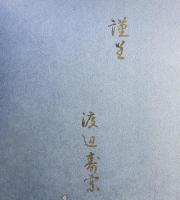 謹呈
渡辺寿宗